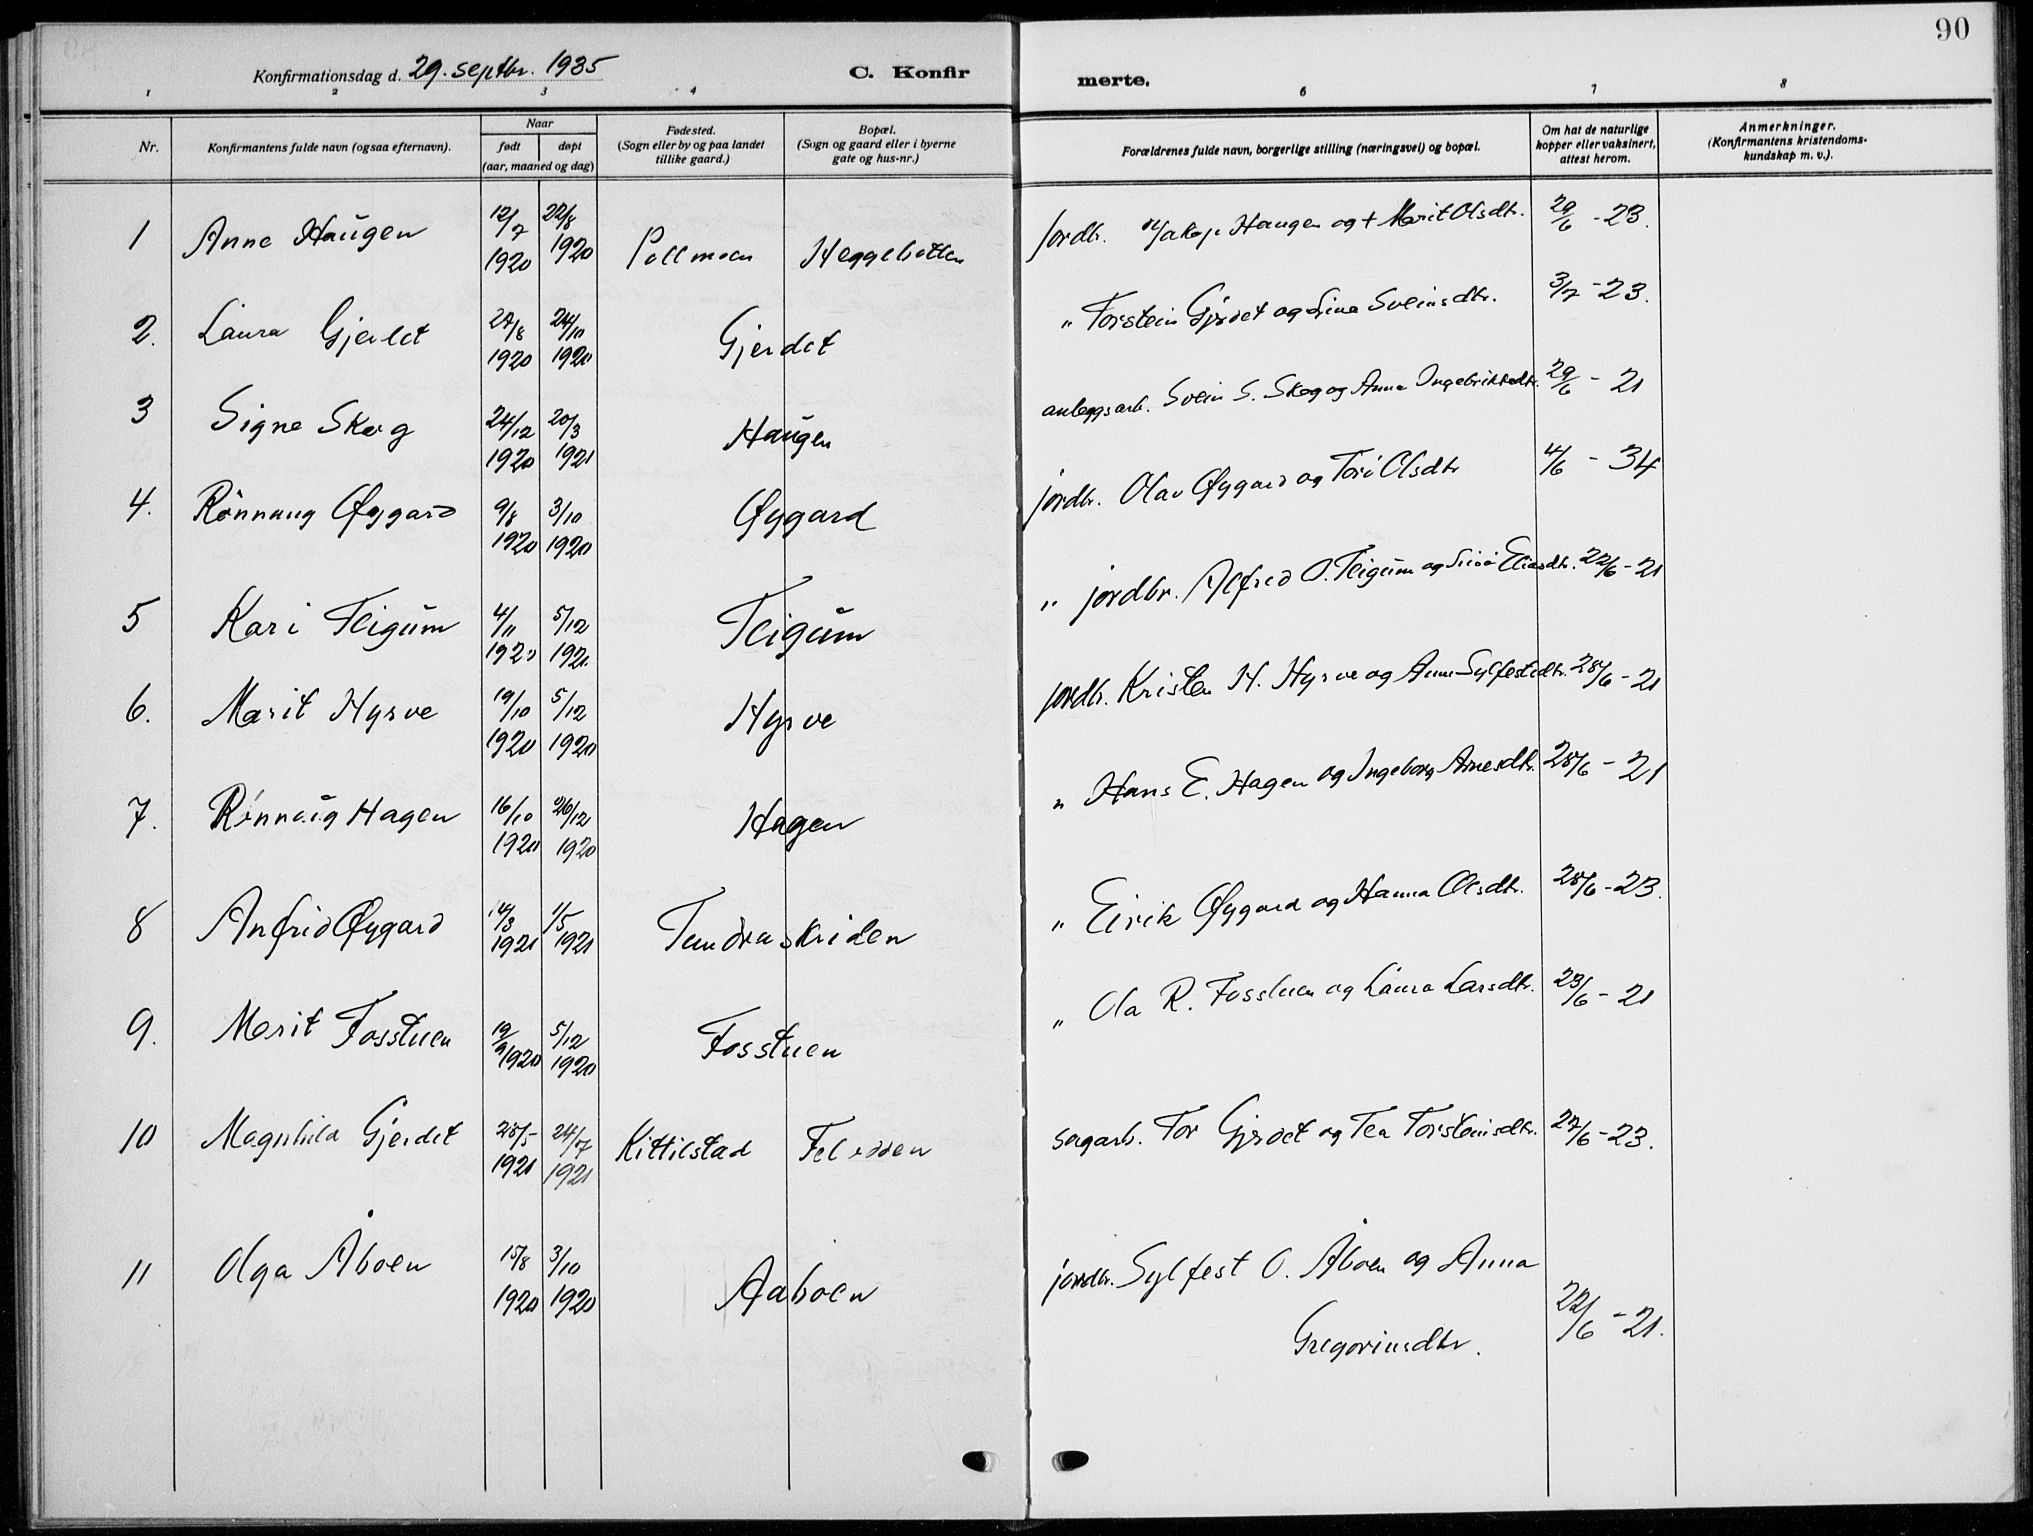 90
Konfirmationsdag d. 29. septbr. 1935 C. Konfir merte.
1 2 3 4 6 7 8
Nr. Konfirmantens fulde navn (ogsaa efternavn). Naar født døpt (aar, maaned og dag) Fødested. (Sogn eller by og paa landet tillike gaard.) Bopæl. (Sogn og gaard eller i byerne gate og hus-nr.) Forældrenes fulde navn, borgerlige stilling (næringsvei) og bopæl. Om hat de naturlige kopper eller vaksinert, attest herom. Anmerkninger. (Konfirmantens kristendoms-kundskap m. v.).
1 Anne Haugen 12/7 1920 22/8 1920 Pollmoen Heggebotten jordbr. Jakop Haugen og + Marit Olsdtr. 29/6 - 23.
2. Laura Gjerdet 27/8 1920 24/10 1920 Gjerdet " Torstein Gjerdet og Lina Sveinsdtr. 3/7 - 23.
3 Signe Skog 24/12 1920 20/3 1921 Haugen anleggsarb. Svein S. Skog og Anna Ingebriktsdtr. 29/6 - 21
4. Rønnaug Øygard 9/8 1920 3/10 1920 Øygard jordbr. Olav Øygard og Tori Olsdtr 4/6 - 34
5 Kari Teigum 4/11 1920 5/12 192 Teigum " jordbr. Alfred O. Teigum og Eliasdtr. 22/6 - 21
6. Marit Hyrve 19/10 1920 5/12 1920 Hyrve jordbr. Kristen H. Hyrve og Anne Sylfestsdtr. 28/6 - 21
7. Rønnaug Hagen 16/10 1920 26/12 1920 Hagen " Hans E. Hagen og Ingeborg Arnesdtr. 28/6 - 21
8 Anfrid Øygard 14/3 1921 1/5 1921 Tundraskriden " Eirik Øygard og Hanna Olsdtr. 28/6 - 23.
9. Marit Fosstuen 19/9 1920 5/12 1920 Fosstuen " Ola R. Fosstuen og Laura Larsdtr. 23/6 - 21
10 Magnhild Gjerdet 28/5 1921 24/7 1921 Kittilstad sagarb. Tor Gjerdet og Tea Torsteinsdtr. 27/6 - 23.
11 Olga Åboen 15/8 1920 3/10 1920 Aaboen jordbr. Sylfest O. Åboen og Anna
Gregoriusdtr. 22/6 - 21.